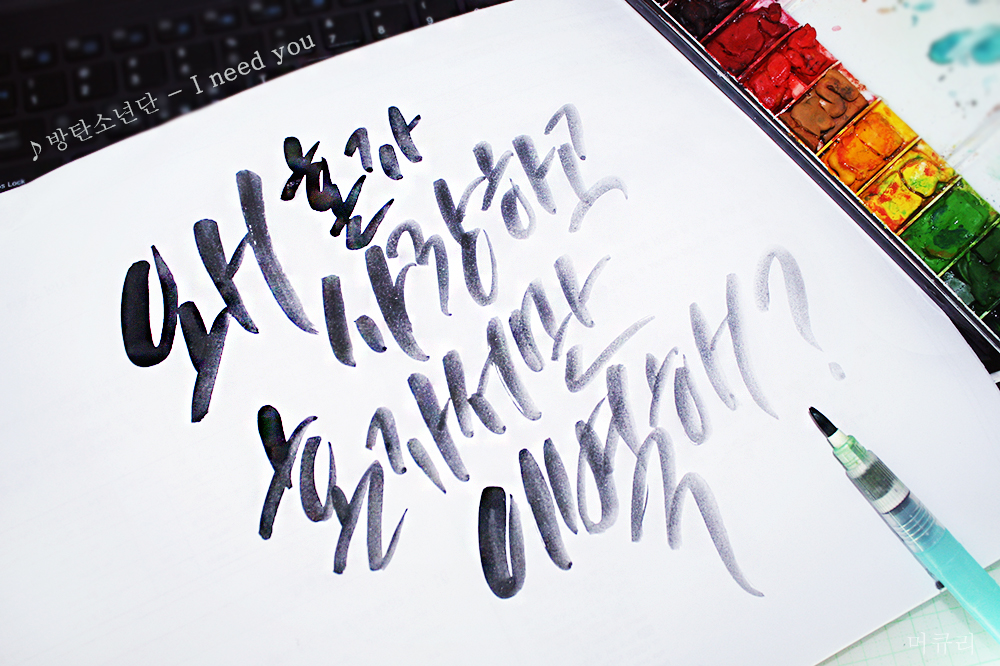 ♪방탄소년단 - I need you
왜 혼자
사랑하고
혼자서만
이별해?
머큐리